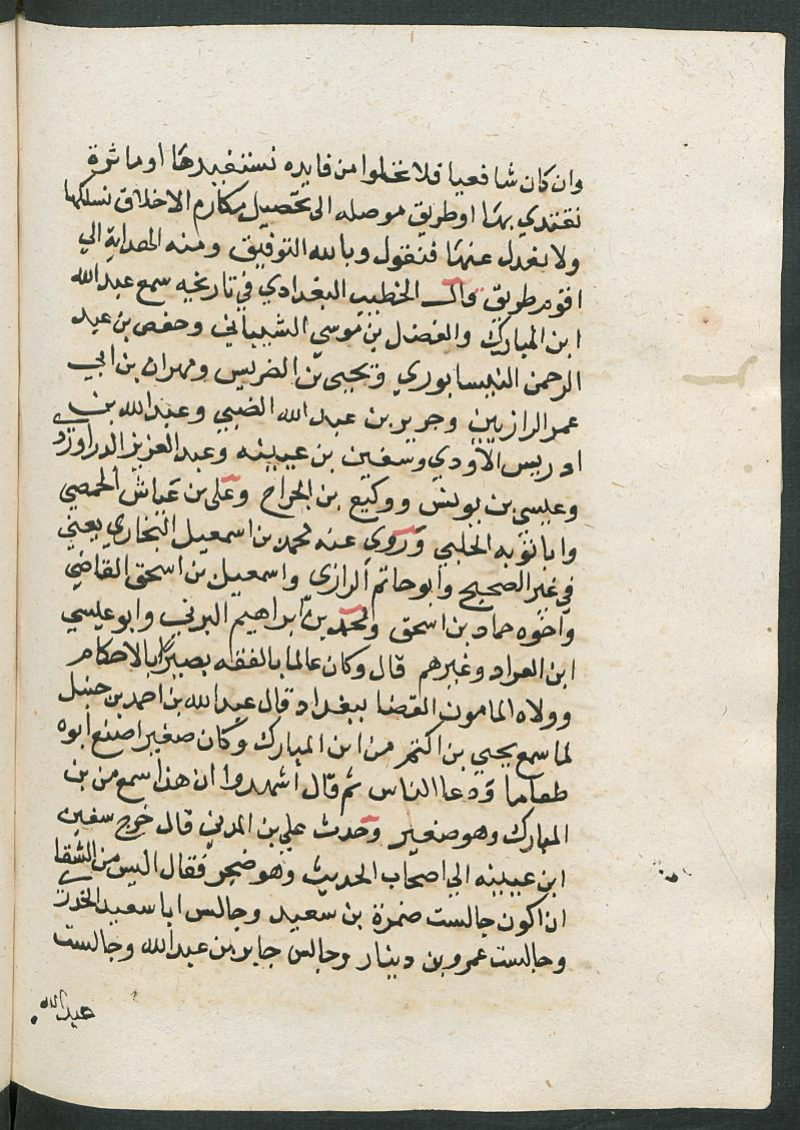 وان كان شافعيا فلا تخلوا من فايده نستفيدها او ماثرة
نقتدي بها او طريق موصله الى تحصيل مكارم الاخلاق نسلكها
ولا نعدل عنها فنقول وبالله التوفيق ومنه الهداية الي
اقوم طريق قال الخطيب البغدادي في تاريخه سمع عبد الله
ابن المبارك والفضل بن موسي الشيباني وحفص بن عبد
الرحمن النيسابوري ويحيى بن الضريس ومهران بن ابي
عمر الرازيين وجرير بن عبد الله الضبي وعبد الله بن
ادريس الاودي وسفين بن عيينه وعبد العزيز الدراوردي
وعيسي بن يونس ووكيع بن الجراح وعلى بن عياش الحمصي
وابا توبه الحلبي وروي عنه محمد بن اسمعيل البخاري يعني
في غير الصحيح وابو حاتم الرازى واسمعيل بن اسحق القاضي
واخوه حماد بن اسحق ومحمد بن ابراهيم البرتي وابو عيسي
ابن العراد وغيرهم قال وكان عالما بالفقه بصيرا بالاحكام
وولاه المامون القضا ببغداد قال عبد الله بن احمد بن حنبل
لما سمع يحيي بن اكثم من ابن المبارك وكان صغيرا صنع ابوه
طعاما ودعا الناس ثم قال أشهدوا ان هذا سمع من بن
المبارك وهو صغير وحدث علي بن المدني قال خرج سفين
ابن عيينه الي اصحاب الحديث وهو ضجر فقال اليس من الشقا
ان اكون جالست ضمرة بن سعيد وجالس ابا سعيد الخدري
وجالست عمرو بن دينار وجالس جابر بن عبد الله وجالست
عبد الله